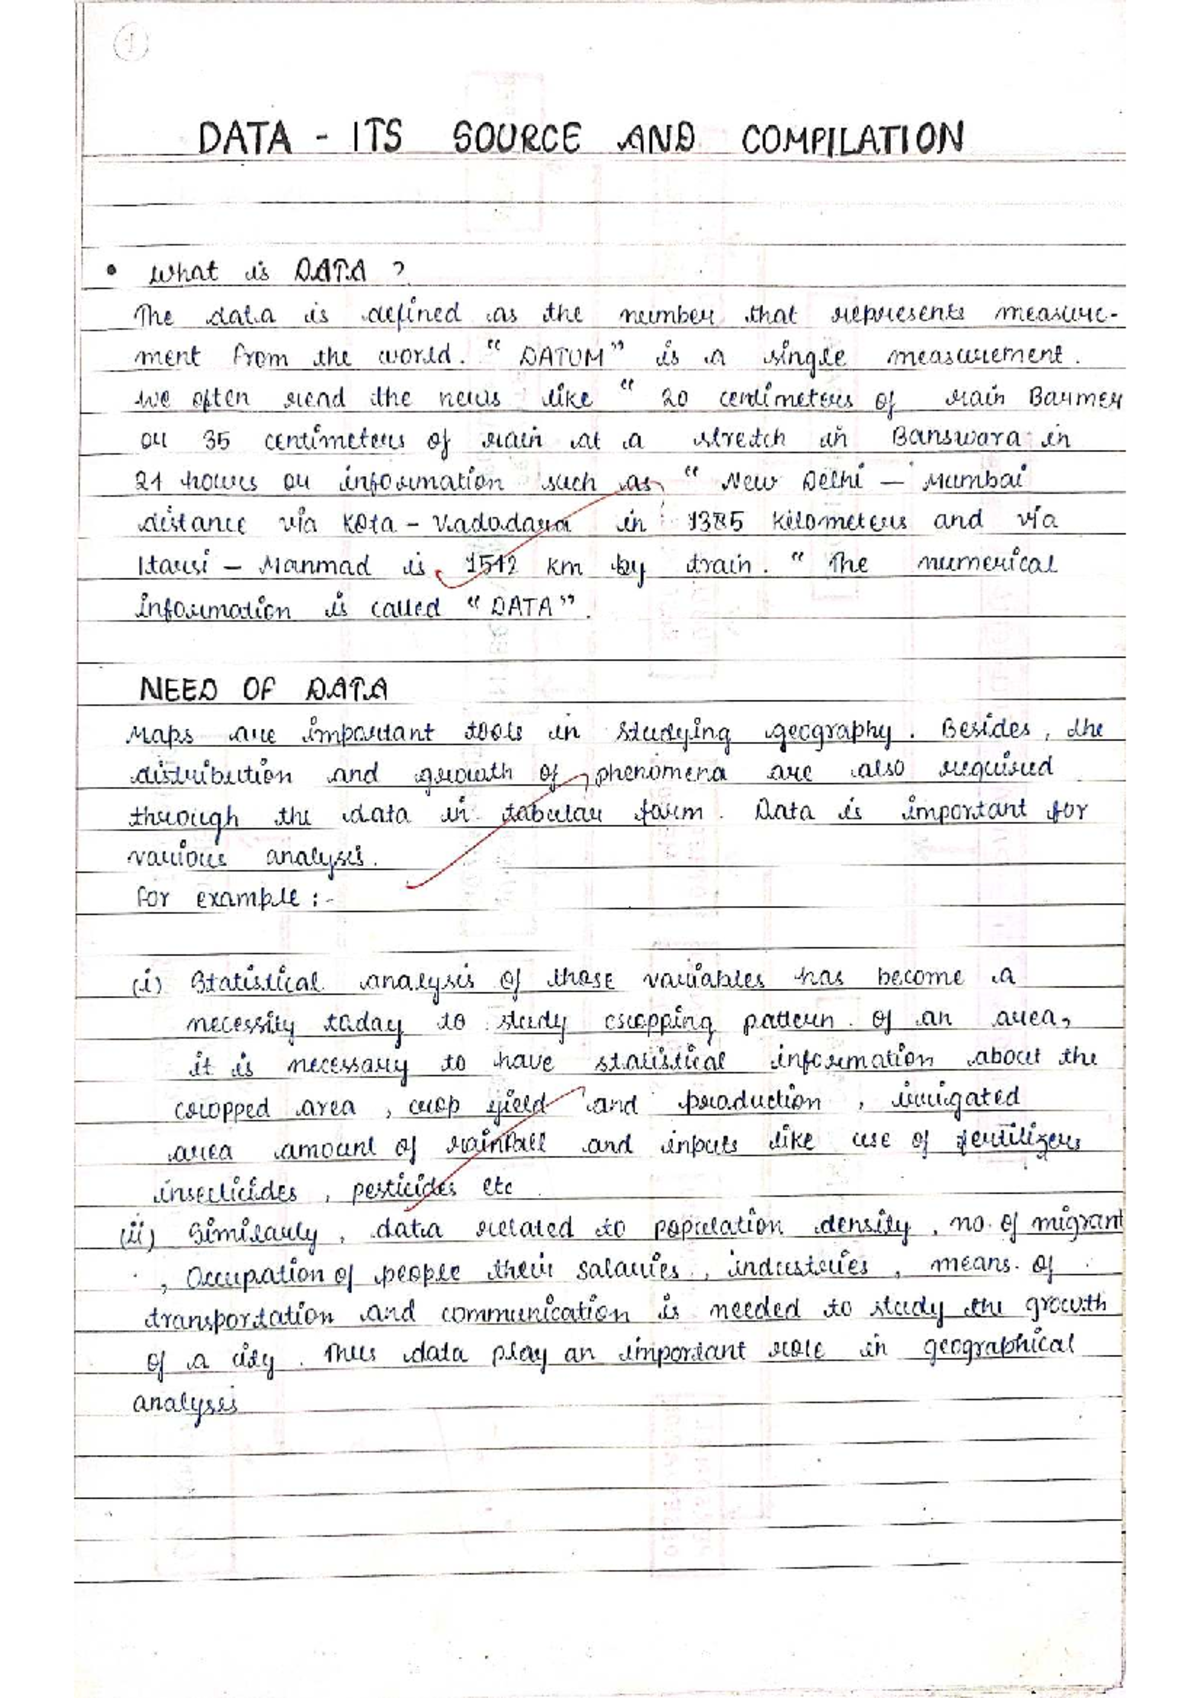 1
DATA - ITS SOURCE AND COMPILATION
• What is DATA ?
The data is defined as the number that represents measure-
ment from the world. "DATUM" is a single measurement.
we often read the news like " 20 centimeters of rain Barmer
or 35 centimeters of rain at a stretch in Banswara in
24 hours or information such as " New Delhi - Mumbai
distance via Kota - Vadodara in 1385 kilometers and via
Itarsi - Manmad is 1542 km by train. " The numerical
information is called "DATA".
NEED OF DATA
Maps are important tools in studying geography. Besides, the
distribution and growth of phenomena are also required
through the data in tabular form. Data is important for
various analysis.
for example :-
(i) Statistical analysis of those variables has become a
necessity today to study cropping pattern of an area,
it is necessary to have statistical information about the
cropped area, crop yield and production, irrigated
area amount of rainfall and inputs like use of fertilizers
insecticides, pesticides etc
(ii) Similarly, data related to population density, no. of migrant
, Occupation of people their salaries, industries, means of
transportation and communication is needed to study the growth
of a city. Thus data play an important role in geographical
analysis